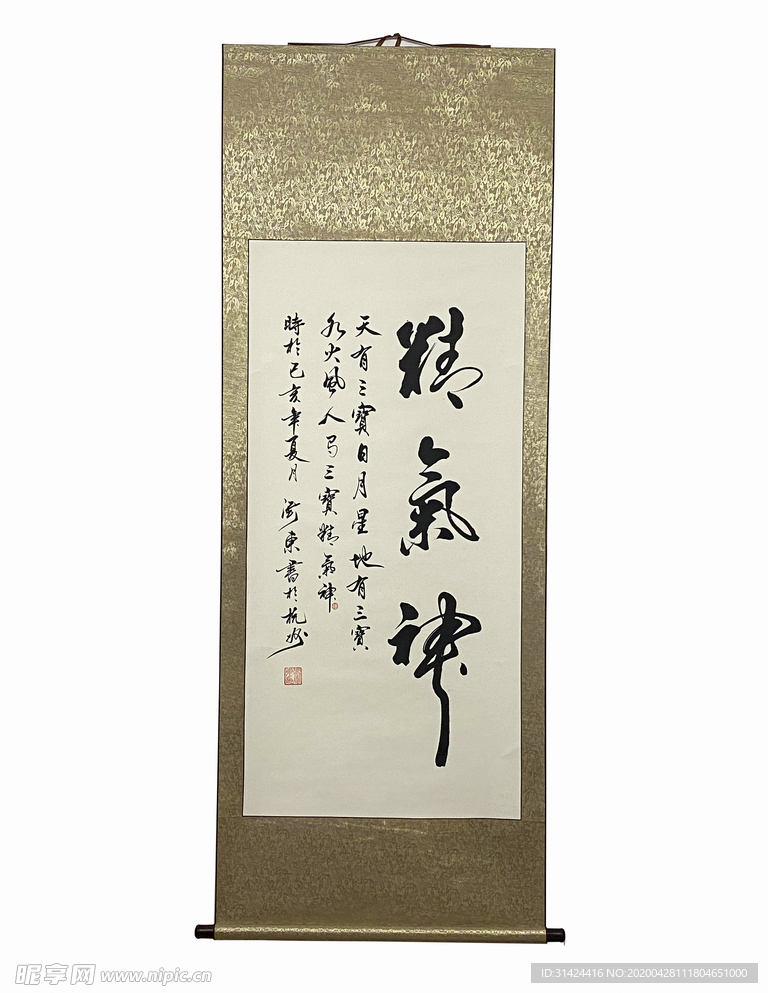 精氣神
天有三寶日月星地有三寶
水火風人三寶精氣神
時於己亥年夏月 東書於杭州
昵享网 www.nipic.cn
ID:31424416 NO:20200428111804651000